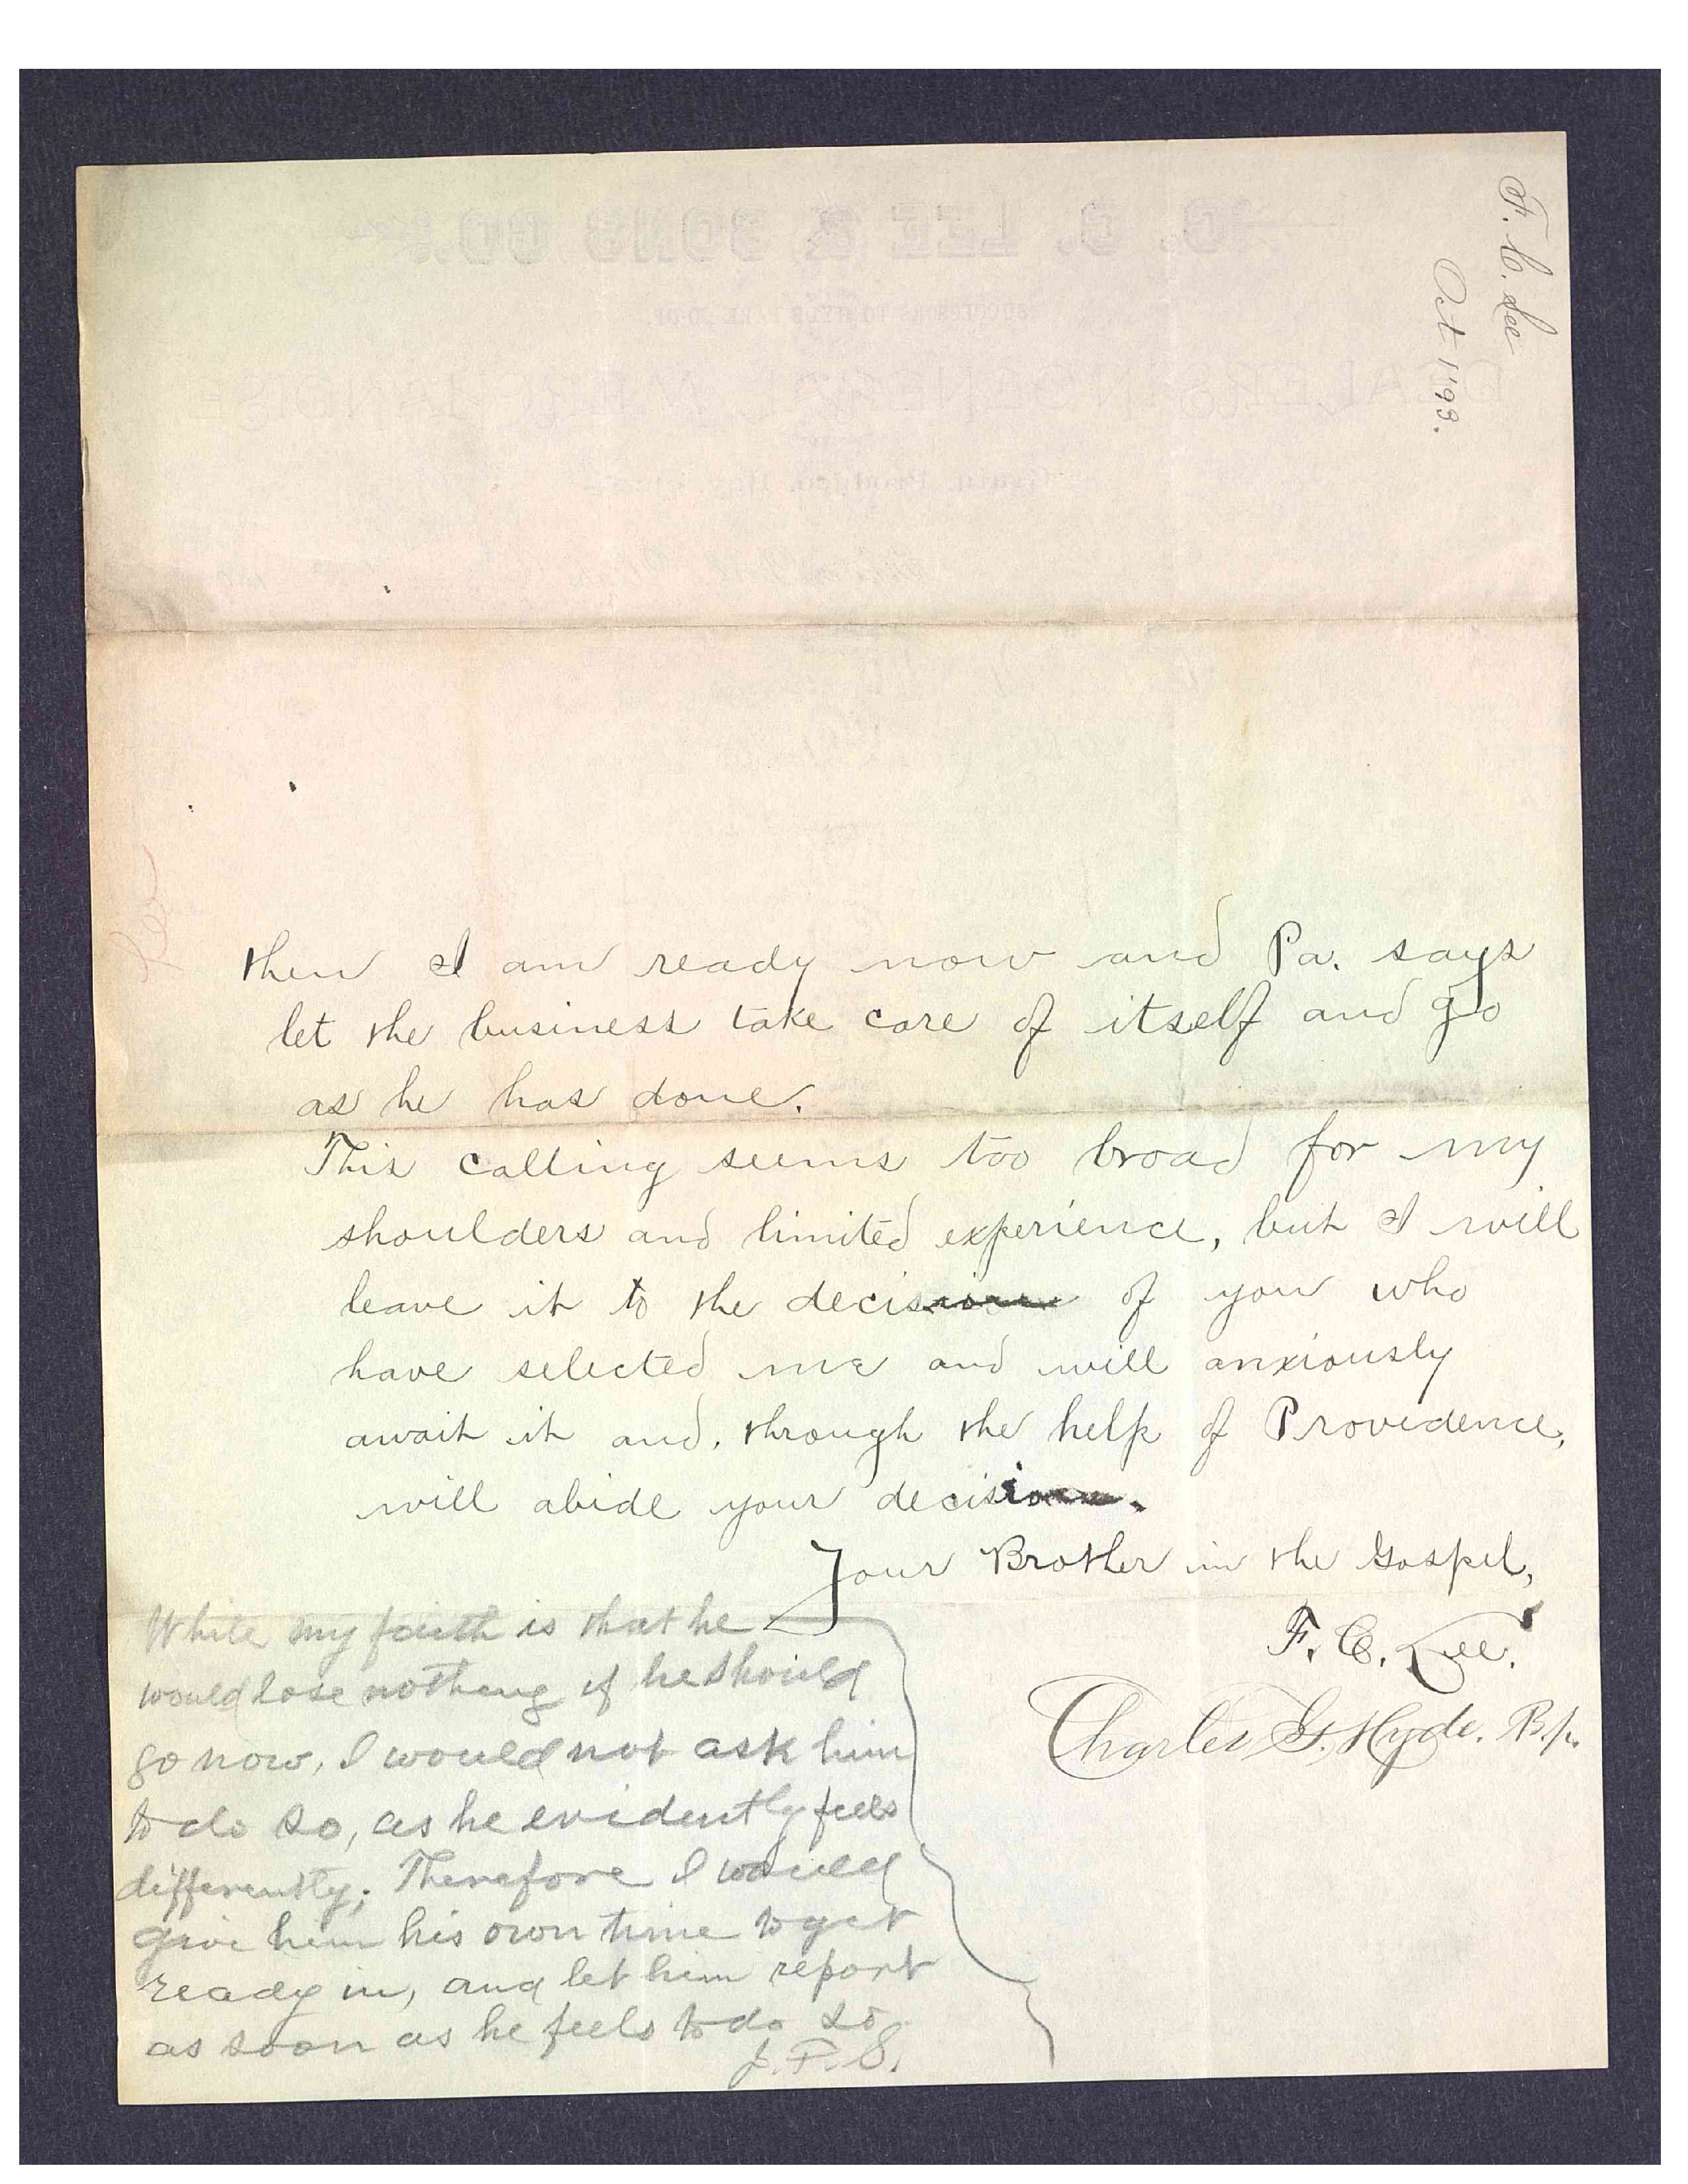 F. C. Lee
Oct 1 '93.
then I am ready now and Pa. says
let the business take care of itself and go
as he has done.
This calling seems too broad for my
shoulders and limited experience, but I will
leave it to the decision of you who
have selected me and will anxiously
await it and, through the help of Providence,
will abide your decision.
Your Brother in the Gospel,
F. C. Lee.
Charles G. Hyde. Bp.
While my faith is that he
would lose nothing if he should
go now, I would not ask him
to do so, as he evidently feels
differently; Therefore I would
give him his own time to get
ready in, and let him report
as soon as he feels to do so.
J. F. S.